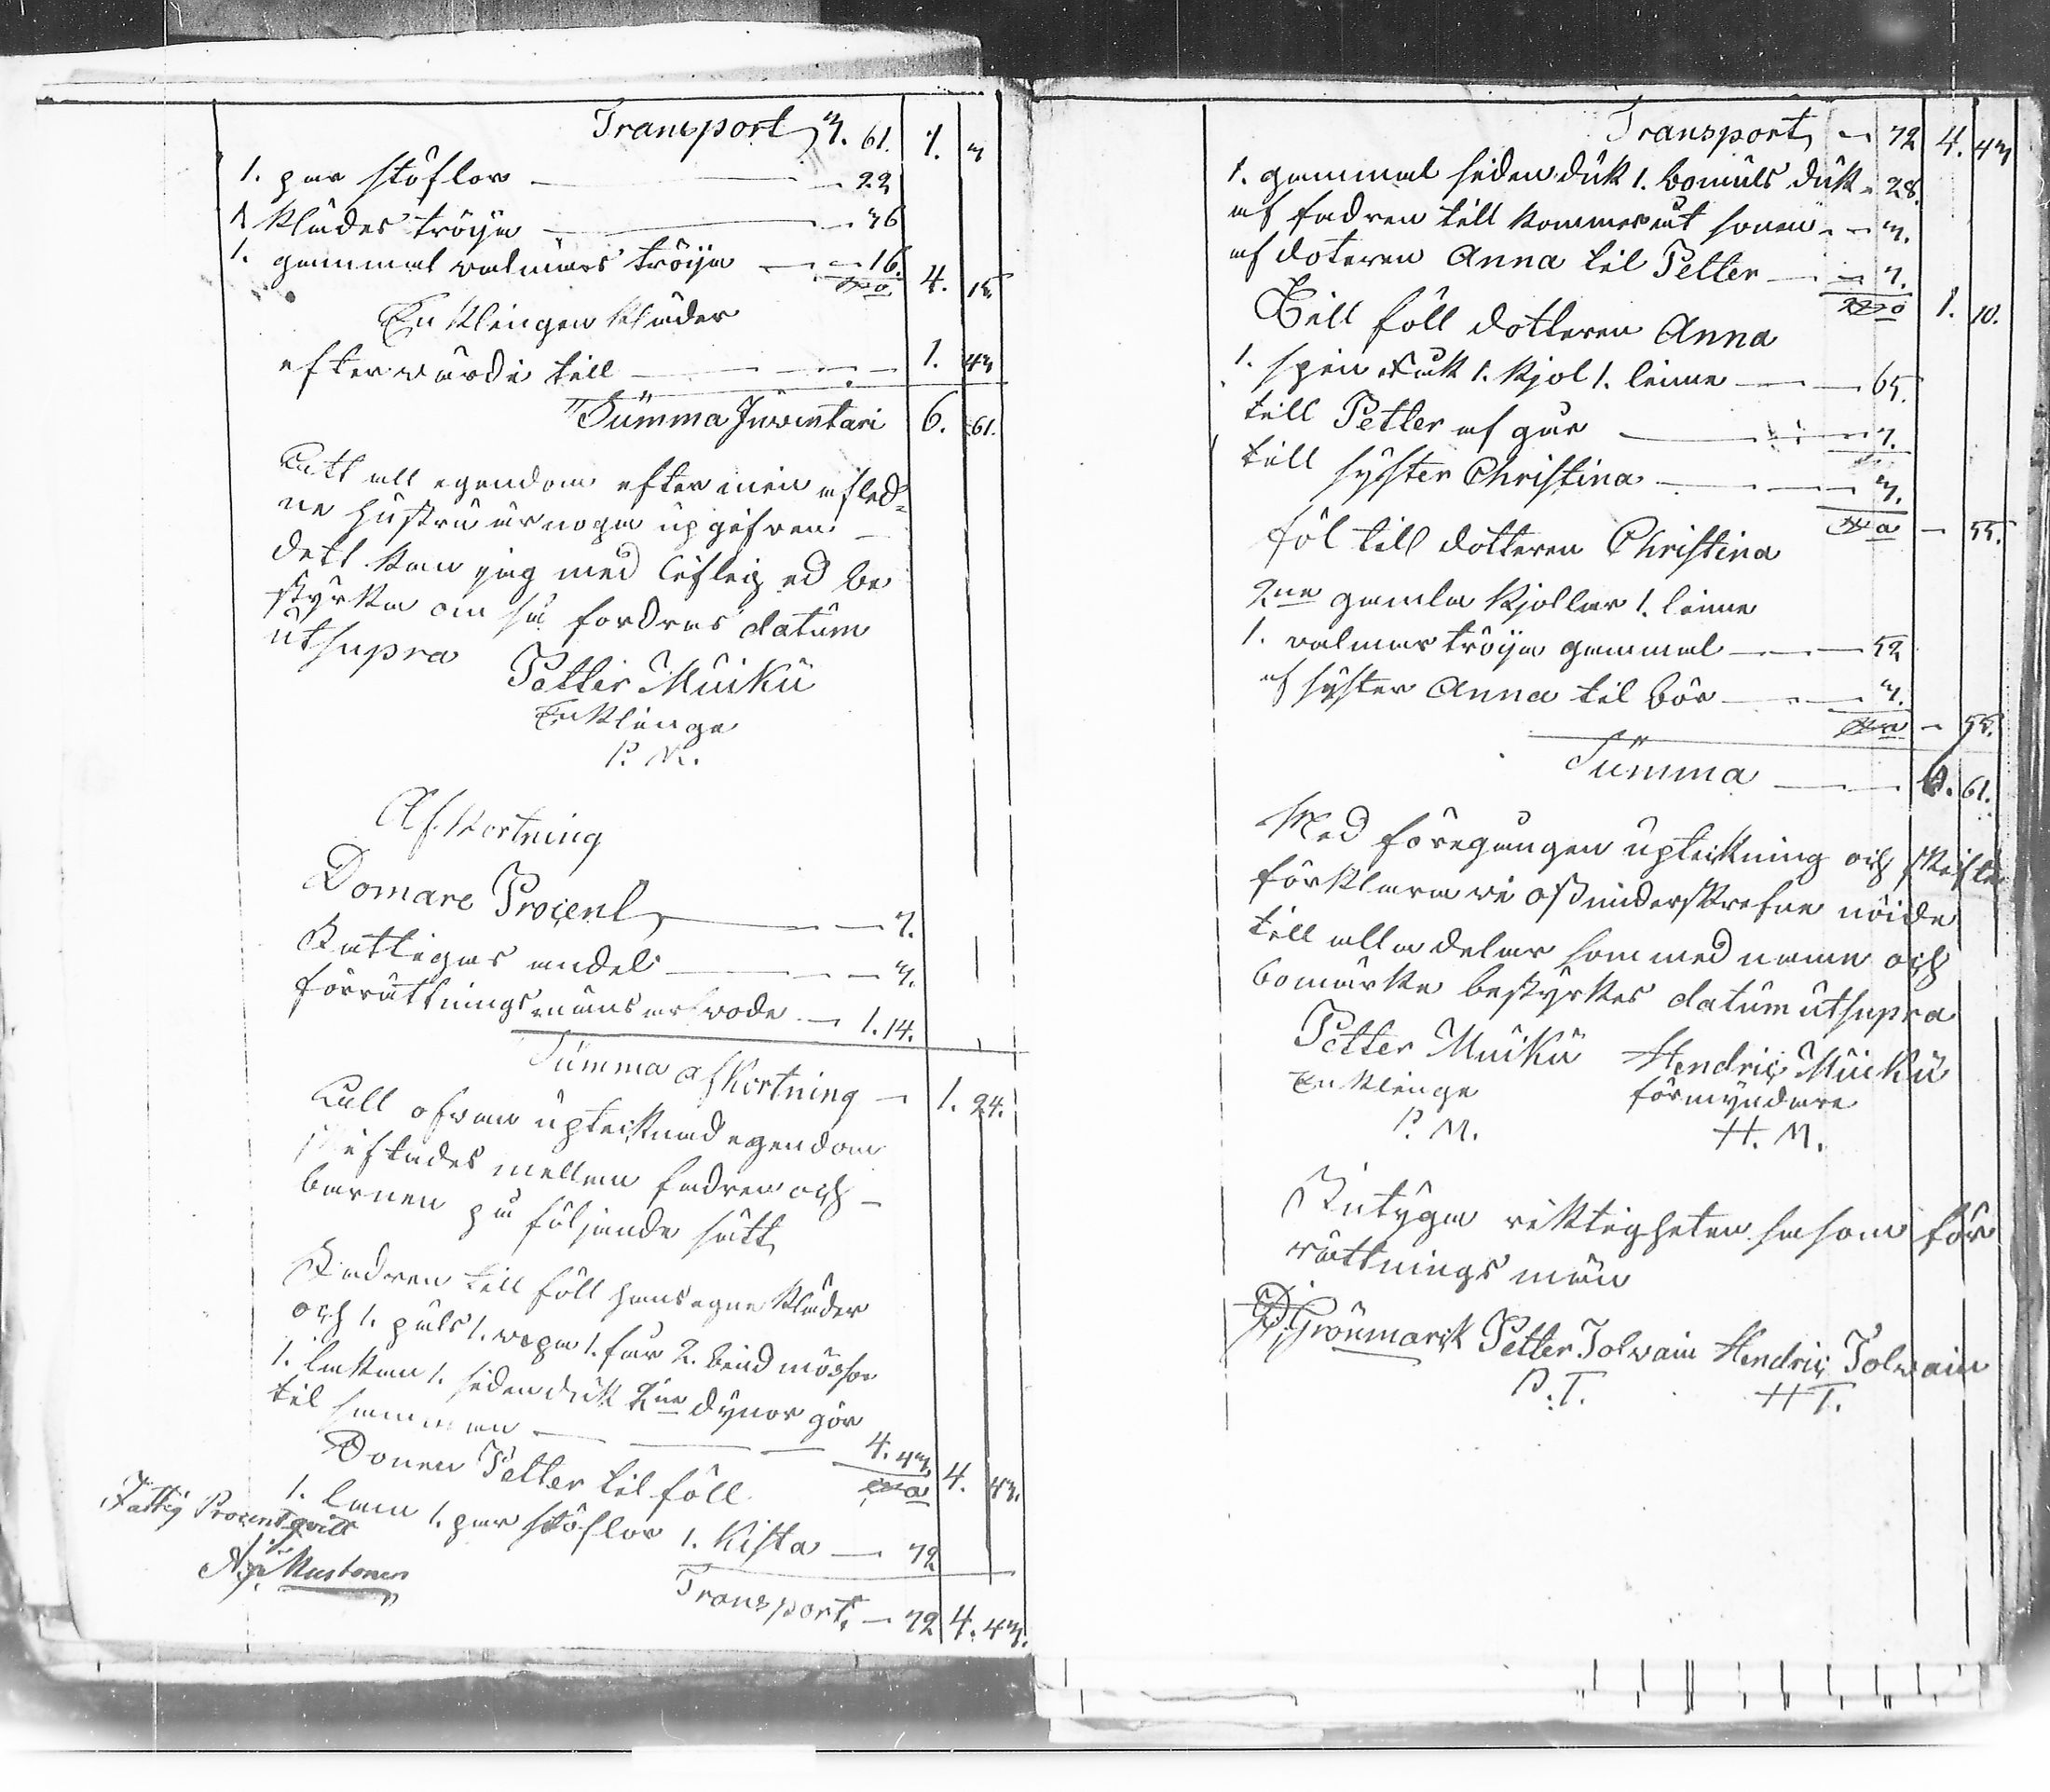 Transport 3. 61. 1. 3
1. par stöflor — 22
1 klädes tröija — 36
1. gammal valmars tröija — 16. 4. 15.
Enklingen kläder
efter värde till — 1. 43
Summa Inventari 6. 61.
att all egendom efter min afled=
ne hustru är noga upgifven
dett kan jag med liflig ed be
styrka om så fordras datum
utsupra
Petter Muikü
Enklinge
P. M.
Afkortning
Domare Procent — 7.
Fattigas andel — 3.
förrättnings mäns arfvode — 1. 14.
Summa afkortning — 1. 24.
all ofvan uptecknad egendom
skiftades mellan fadren och
barnen på följande sätt
Fadren till föll hans egna kläder
och 1. päls 1. 1. får 2. bindmössor
1. lakan 1. siden duk 2ne dynor gör
til samman — 4. 43. 4. 43.
Sonen Petter til föll
1. lam 1. par stöflor 1. Kista — 72
Transport — 72 4. 43.
Fattig Procent qvitt
Mustonen
Transport — 72 4. 43
1. gammal siden duk 1. bomuls duk — 28.
af fadren till kommer ut sonen — 3.
af doteren Anna til Petter — 7.
1. 10.
Till föll dotteren Anna
1. spin råck 1. kjol 1. linne — 65.
till Petter af går — 7.
till syster Christina — 3.
— 55.
föl till dotteren Christina
2ne gamla kjollar 1. linne
1. valmars tröija gammal — 52
af syster Anna til bör — 3.
— 55.
Summa — 6. 61.
Med föregången upteckning och skifte
förklara vi oss underskrefne nöide
till alla delar som med namn och
bomärke bestyrkes datum utsupra
Petter Muikü Hendric Muikü
Enklinge förmyndare
P. M. H. M.
Intyga riktigheten såsom för
rättnings män
Grönmarck Petter Tolvain Hendric Tolvain
P. T. H T.